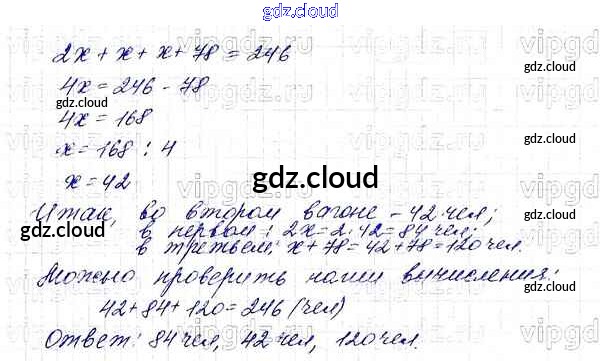 gdz.cloud
2x + x + x + 78 = 246
4x = 246 - 78
4x = 168
x = 168 : 4
x = 42
Итак, во втором вагоне - 42 чел;
в первом: 2x = 2·42 = 84 чел;
в третьем: x + 78 = 42 + 78 = 120 чел.
Можно проверить наши вычисления:
42 + 84 + 120 = 246 (чел)
Ответ: 84 чел, 42 чел, 120 чел.
gdz.cloud
gdz.cloud
gdz.cloud
gdz.cloud
gdz.cloud
gdz.cloud
gdz.cloud
vipgdz.ru